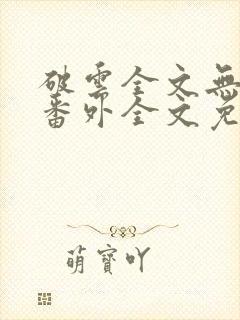 破雲全文無
番外全文免
萌寶吖